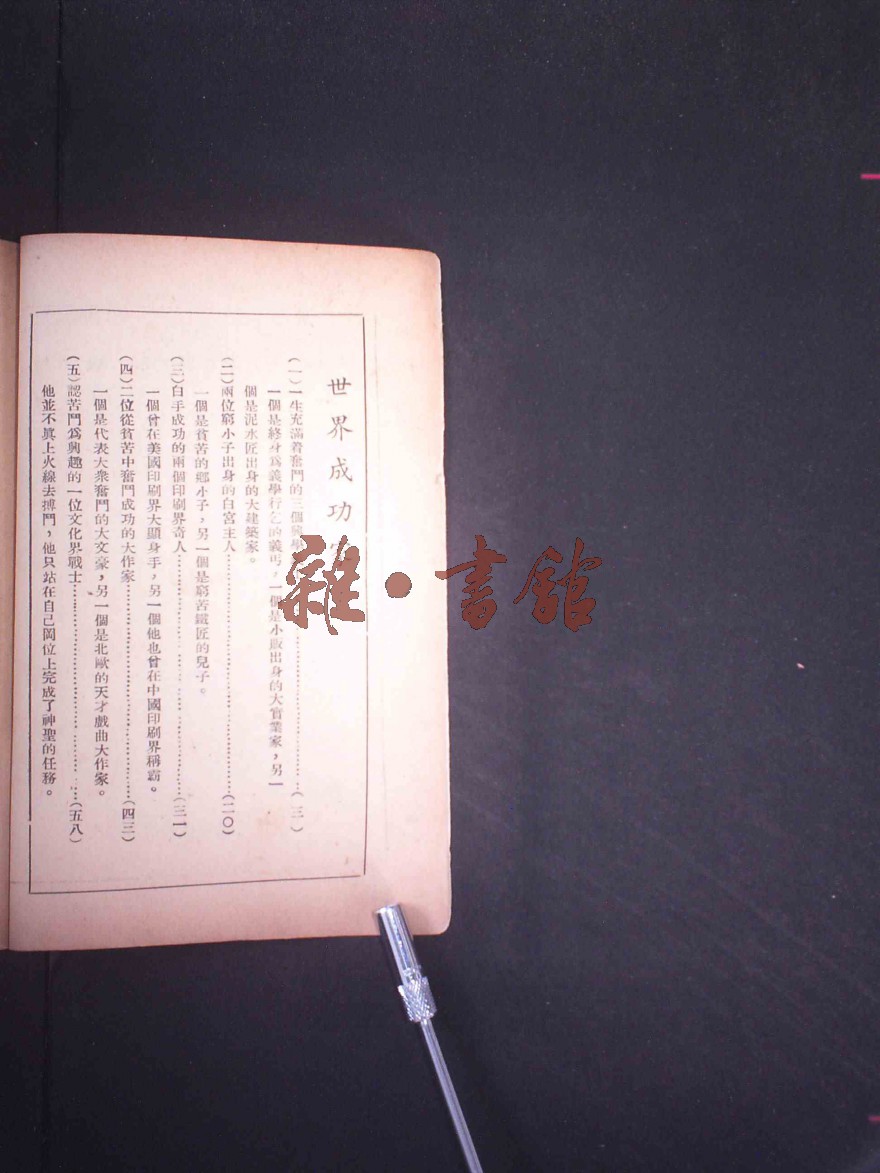 世界成功
（一）一生充滿着奮鬥的三個興學……（三）
一個是終身爲義學行乞的義丐，一個是小販出身的大實業家，另一
個是泥水匠出身的大建築家。
（二）兩位窮小子出身的白宮主人……（二〇）
一個是貧苦的鄉小子，另一個是窮苦鐵匠的兒子。
（三）白手成功的兩個印刷界奇人……（三一）
一個曾在美國印刷界大顯身手，另一個他也曾在中國印刷界稱霸。
（四）二位從貧苦中奮鬥成功的大作家……（四三）
一個是代表大衆奮鬥的大文豪，另一個是北歐的天才戲曲大作家。
（五）認苦鬥爲興趣的一位文化界戰士……（五八）
他並不眞上火線去搏鬥，他只站在自己岡位上完成了神聖的任務。
雜·書館